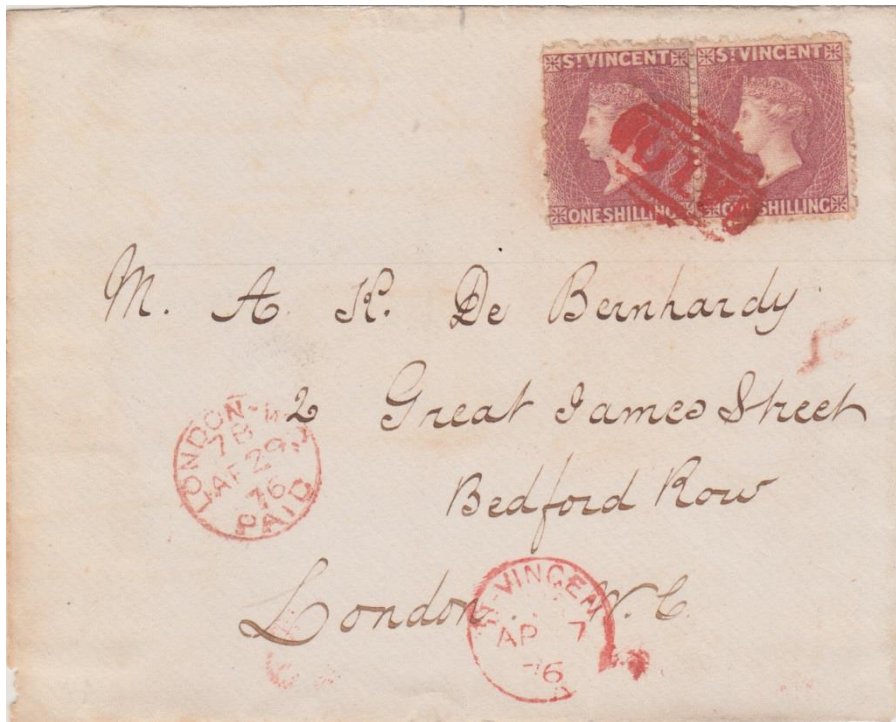 ST VINCENT ST VINCENT
ONE SHILLING ONE SHILLING
M. A. K. De Bernhardy
2 Great James Street
Bedford Row
London W.C.
LONDON-W
7B
AP 29
76
PAID
ST-VINCENT
AP 7
76